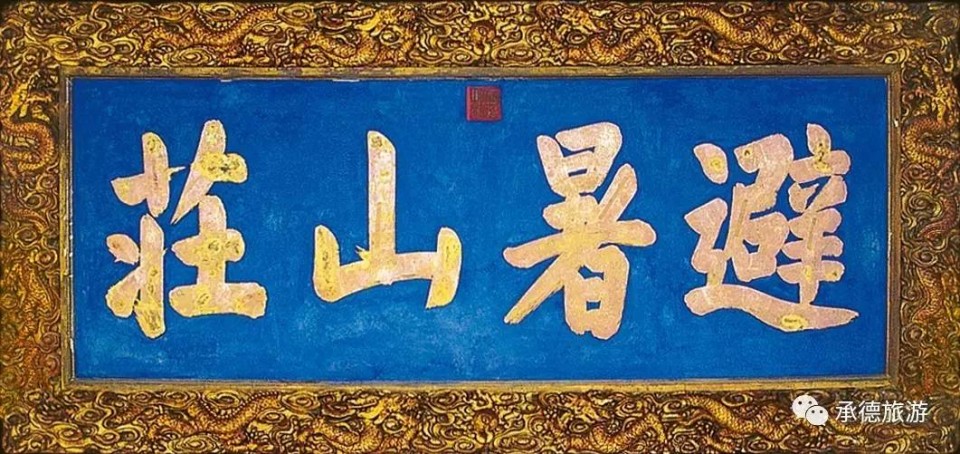 避暑山莊
承德旅游